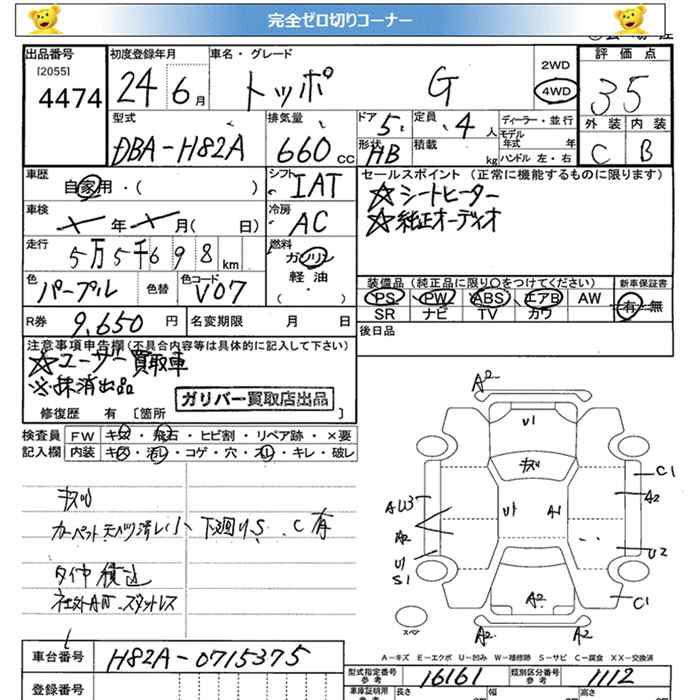 完全ゼロ切りコーナー
出品番号 初度登録年月 車名・グレード 2WD 評価点
[2055] 4474 24 6月 トッポ G 4WD 35
型式 排気量 ドア 5 定員 4人 ディーラー・並行 外装 内装
DBA-H82A 660cc 形状 HB 積載 kg モデル年式 年式 ハンドル 左・右 C B
車歴 自家用・( ) シフト IAT セールスポイント (正常に機能するものに限ります)
車検 年 月( 日) 冷房 AC ☆シートヒーター
☆純正オーディオ
走行 5万5千698km 燃料 ガソリン
軽油
・( )
色 パープル 色替 色コード V07 装備品 (純正品に限り○をつけてください) 新車保証書
PS PW ABS エアB AW 有・無
SR ナビ TV カワ
R券 9,650円 名変期限 月 日 後日品
注意事項申告欄(不具合内容等は具体的に記入して下さい)
☆ユーザー買取車
※抹消出品
ガリバー買取店出品
修復歴 有 [箇所 ]
検査員 FW キズ・飛石・ヒビ割・リペア跡・×要
記入欄 内装 キズ・汚レ・コゲ・穴・スレ・キレ・破レ
キズU
カーペット 天バリ 汚レ小 下廻りS、C有
タイヤ積込
社外AW スタッドレス
A2
U1
キズU
C1
AW3 U1 A1 A2
A2
U1 U2
S1
A2 C1
スペア A2 A2
A-キズ E-エクボ U-凹み W-補修跡 S-サビ C-腐食 XX-交換済
車台番号 H82A-0715375 型式指定番号 参考 16161 類別区分番号 参考 1112
登録番号 車庫証明用 参考 長さ 幅 高さ